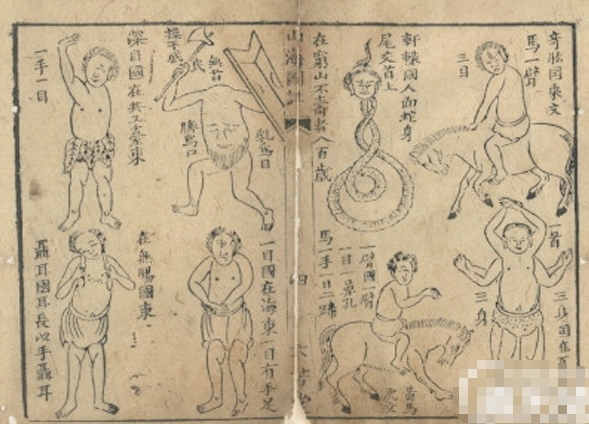 奇肱國乘文
馬一臂
三目
軒轅國人面蛇身
尾交首上
在窮山不壽者八百歲
一首
三身
三身國在
一臂國一臂
一目一鼻孔
馬一手日二蹄
黃馬
虎文
山海圖
四
無首
操干戚
乳為目
臍為口
深目國在共工臺東
一手一目
一目國在海東一目有手足
在無腸國東
聶耳國耳長以手聶耳